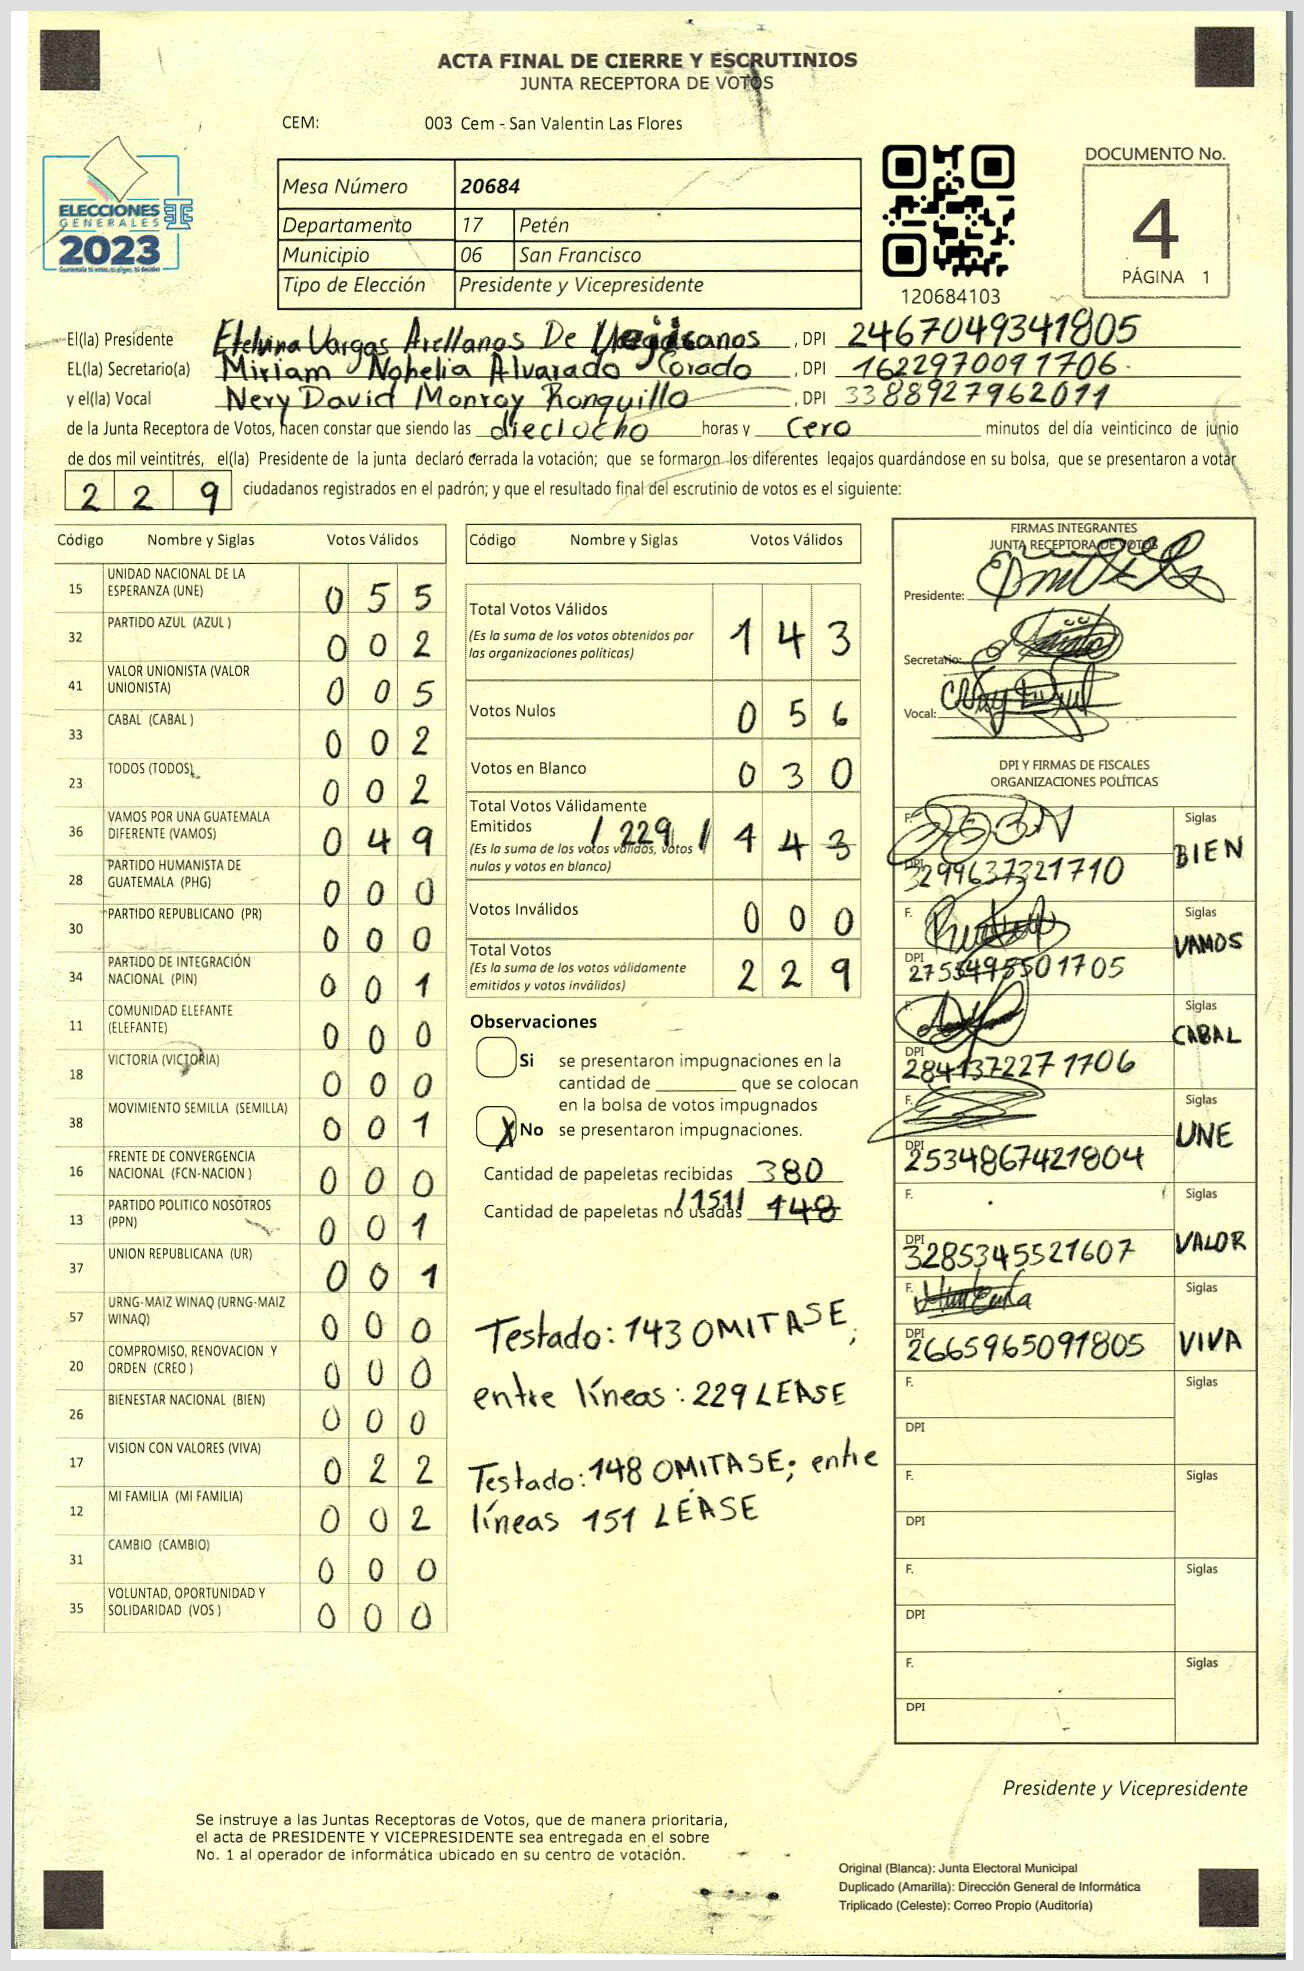 ACTA FINAL DE CIERRE Y ESCRUTINIOS
JUNTA RECEPTORA DE VOTOS
CEM: 003 Cem - San Valentin Las Flores
ELECCIONES
GENERALES
2023
Mesa Número 20684
Departamento 17 Petén
Municipio 06 San Francisco
Tipo de Elección Presidente y Vicepresidente
120684103
DOCUMENTO No.
4
PÁGINA 1
El(la) Presidente Etelvina Vargas Arellanos De , DPI 2467049341805
EL(la) Secretario(a) Miriam Nohelia Alvarado Corado , DPI 1622970091706
y el(la) Vocal Nery David Monroy Ronquillo , DPI 3388927962011
de la Junta Receptora de Votos, hacen constar que siendo las dieciocho horas y cero minutos del día veinticinco de junio
de dos mil veintitrés, el(la) Presidente de la junta declaró cerrada la votación; que se formaron los diferentes legajos guardándose en su bolsa, que se presentaron a votar
2 2 9 ciudadanos registrados en el padrón; y que el resultado final del escrutinio de votos es el siguiente:
Código Nombre y Siglas Votos Válidos
15 UNIDAD NACIONAL DE LA ESPERANZA (UNE) 0 5 5
32 PARTIDO AZUL (AZUL ) 0 0 2
41 VALOR UNIONISTA (VALOR UNIONISTA) 0 0 5
33 CABAL (CABAL ) 0 0 2
23 TODOS (TODOS) 0 0 2
36 VAMOS POR UNA GUATEMALA DIFERENTE (VAMOS) 0 4 9
28 PARTIDO HUMANISTA DE GUATEMALA (PHG) 0 0 0
30 PARTIDO REPUBLICANO (PR) 0 0 0
34 PARTIDO DE INTEGRACIÓN NACIONAL (PIN) 0 0 1
11 COMUNIDAD ELEFANTE (ELEFANTE) 0 0 0
18 VICTORIA (VICTORIA) 0 0 0
38 MOVIMIENTO SEMILLA (SEMILLA) 0 0 1
16 FRENTE DE CONVERGENCIA NACIONAL (FCN-NACION ) 0 0 0
13 PARTIDO POLITICO NOSOTROS (PPN) 0 0 1
37 UNION REPUBLICANA (UR) 0 0 1
57 URNG-MAIZ WINAQ (URNG-MAIZ WINAQ) 0 0 0
20 COMPROMISO, RENOVACION Y ORDEN (CREO ) 0 0 0
26 BIENESTAR NACIONAL (BIEN) 0 0 0
17 VISION CON VALORES (VIVA) 0 2 2
12 MI FAMILIA (MI FAMILIA) 0 0 2
31 CAMBIO (CAMBIO) 0 0 0
35 VOLUNTAD, OPORTUNIDAD Y SOLIDARIDAD (VOS ) 0 0 0
Código Nombre y Siglas Votos Válidos
Total Votos Válidos 1 4 3
(Es la suma de los votos obtenidos por
las organizaciones políticas)
Votos Nulos 0 5 6
Votos en Blanco 0 3 0
Total Votos Válidamente
Emitidos / 229 / 1 4 3
(Es la suma de los votos validos, votos
nulos y votos en blanco)
Votos Inválidos 0 0 0
Total Votos 2 2 9
(Es la suma de los votos válidamente
emitidos y votos inválidos)
Observaciones
Si se presentaron impugnaciones en la
cantidad de ________ que se colocan
en la bolsa de votos impugnados
X No se presentaron impugnaciones.
Cantidad de papeletas recibidas 380
Cantidad de papeletas no usadas /151/ 148
Testado: 143 OMITASE;
entre líneas: 229 LEASE
Testado: 148 OMITASE; entre
líneas 151 LEASE
FIRMAS INTEGRANTES
JUNTA RECEPTORA DE VOTOS
Presidente:
Secretario:
Vocal:
DPI Y FIRMAS DE FISCALES
ORGANIZACIONES POLÍTICAS
F. Siglas
DPI 3299637321710 BIEN
F. Siglas
DPI 2755495501705 VAMOS
F. Siglas
DPI 2841372271706 CABAL
F. Siglas
DPI 2534867421804 UNE
F. Siglas
DPI 3285345521607 VALOR
F. Siglas
DPI 2665965091805 VIVA
F. Siglas
DPI
F. Siglas
DPI
F. Siglas
DPI
F. Siglas
DPI
Presidente y Vicepresidente
Se instruye a las Juntas Receptoras de Votos, que de manera prioritaria,
el acta de PRESIDENTE Y VICEPRESIDENTE sea entregada en el sobre
No. 1 al operador de informática ubicado en su centro de votación.
Original (Blanca): Junta Electoral Municipal
Duplicado (Amarilla): Dirección General de Informática
Triplicado (Celeste): Correo Propio (Auditoría)